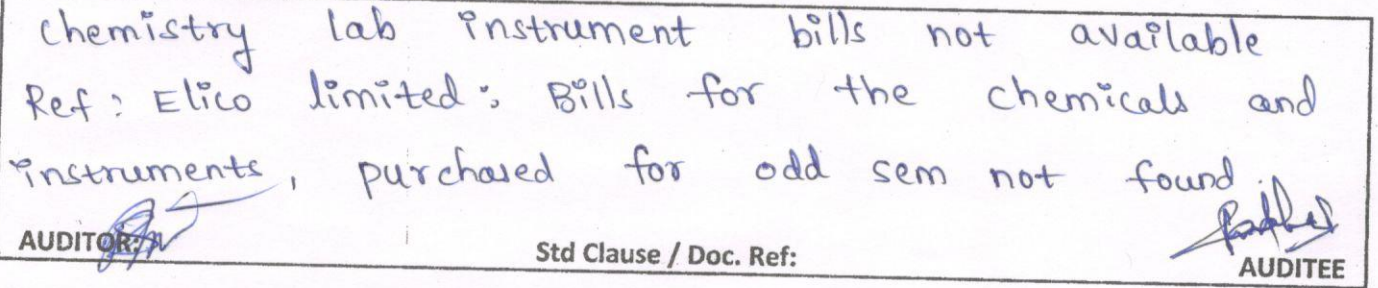 chemistry lab instrument bills not available
Ref: Elico limited: Bills for the chemicals and
instruments, purchased for odd sem not found.
AUDITOR: Std Clause / Doc. Ref: AUDITEE